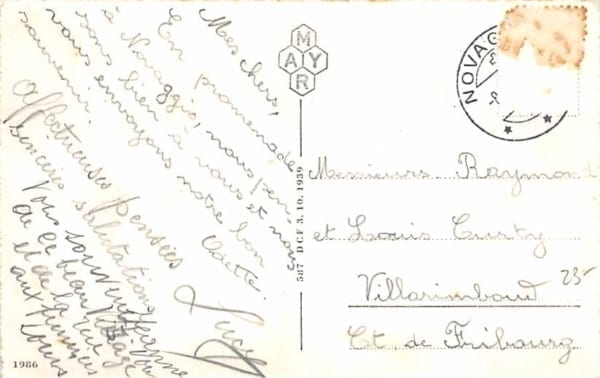 Mes chers!
En promenade
à Novaggio, nous pen-
sons bien à vous et nous
vous envoyons notre bon
souvenir. Odette.
Affectueuses pensées
sincères salutations
Lucie
Vous souvenez
de ce beau
et de la
aux
tours
1986
M
A Y
R
587 DCF 3.10.1939
NOVAG
Messieurs Raymond
et Louis Curty
Villarimboud
Ct. de Fribourg
25.-